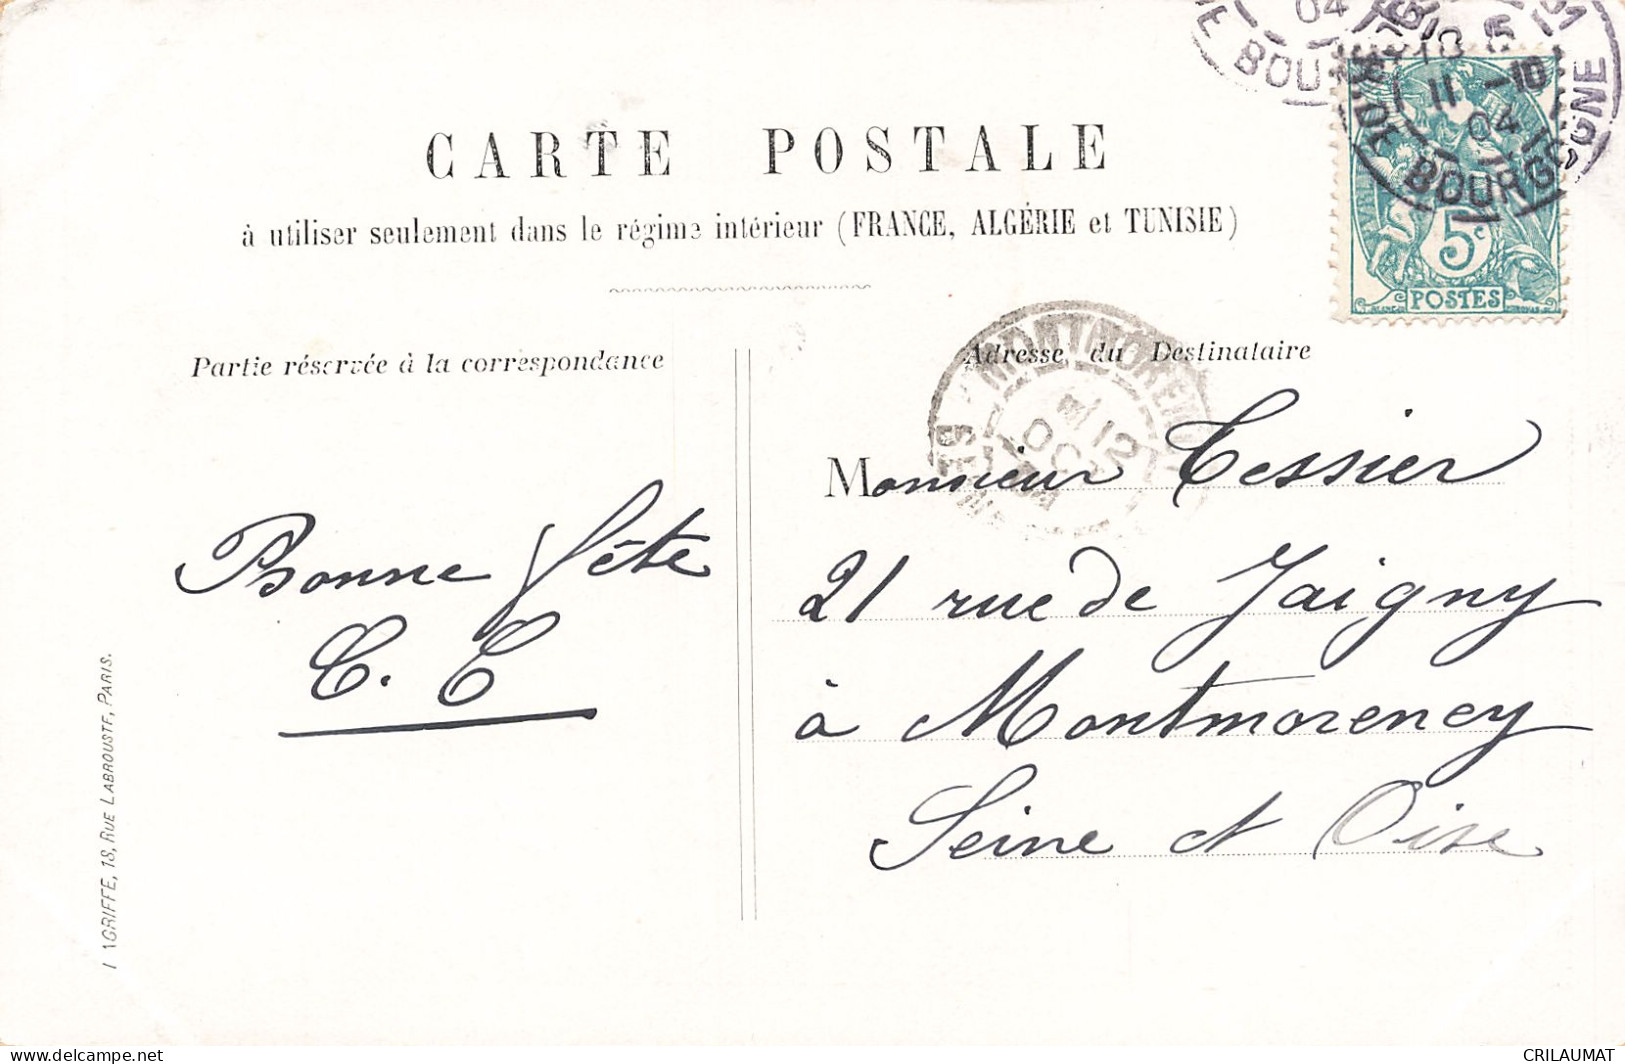 CARTE POSTALE
à utiliser seulement dans le régime intérieur (FRANCE, ALGÉRIE et TUNISIE)
5c
POSTES
BOURG
MONTMORENCY
12
OCT
Partie réservée à la correspondance
Bonne fête
C. C
Adresse du Destinataire
Monsieur Tessier
21 rue de Jaigny
à Montmorency
Seine et Oise
AGRIFFE, 18, RUE LABROUSTE, PARIS.
delcampe.net
CRILAUMAT